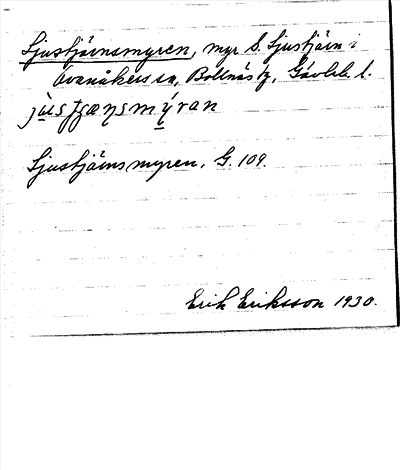 Ljustjärnsmyren, myr S. Ljustjärn i
Ovanåkers sn, Bollnäs tg, Gävleb. l.
jusʧæɳsmýran
Ljustjärnsmyren, G. 109.
Erik Eriksson 1930.